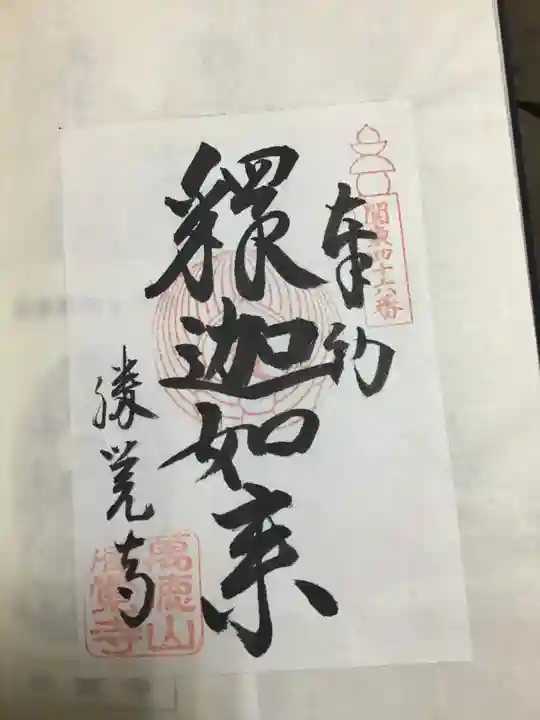 関東四十六番
奉納
釋迦如来
勝覚寺
勝覺寺